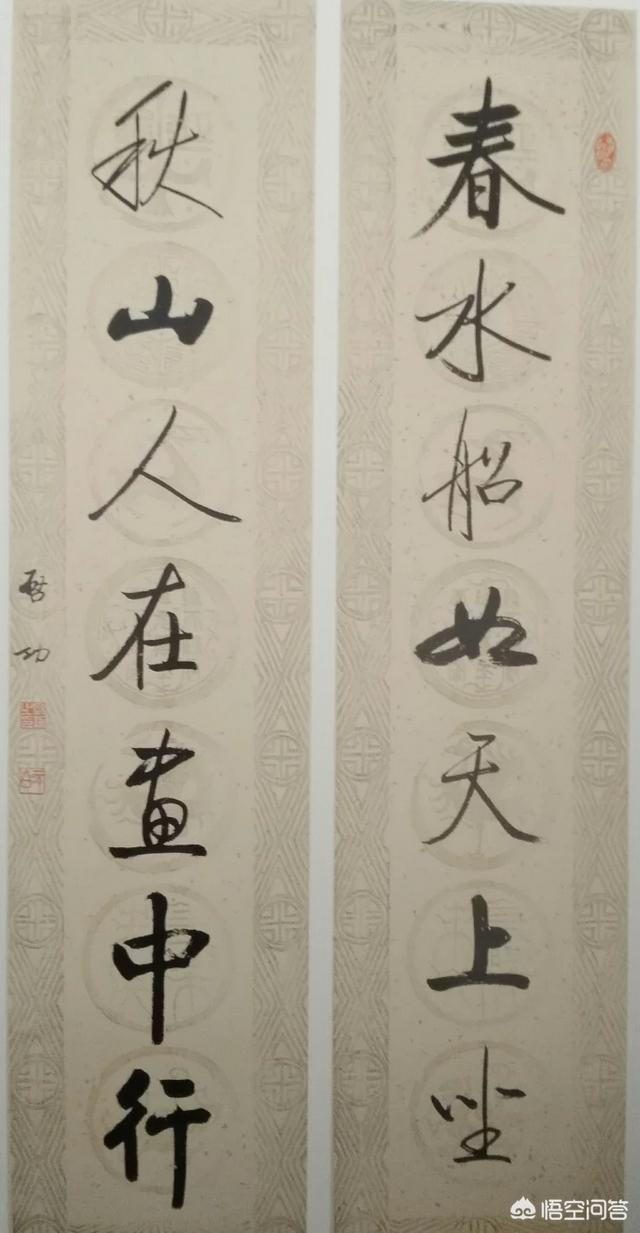 春水船如天上坐
秋山人在画中行
启功
悟空问答